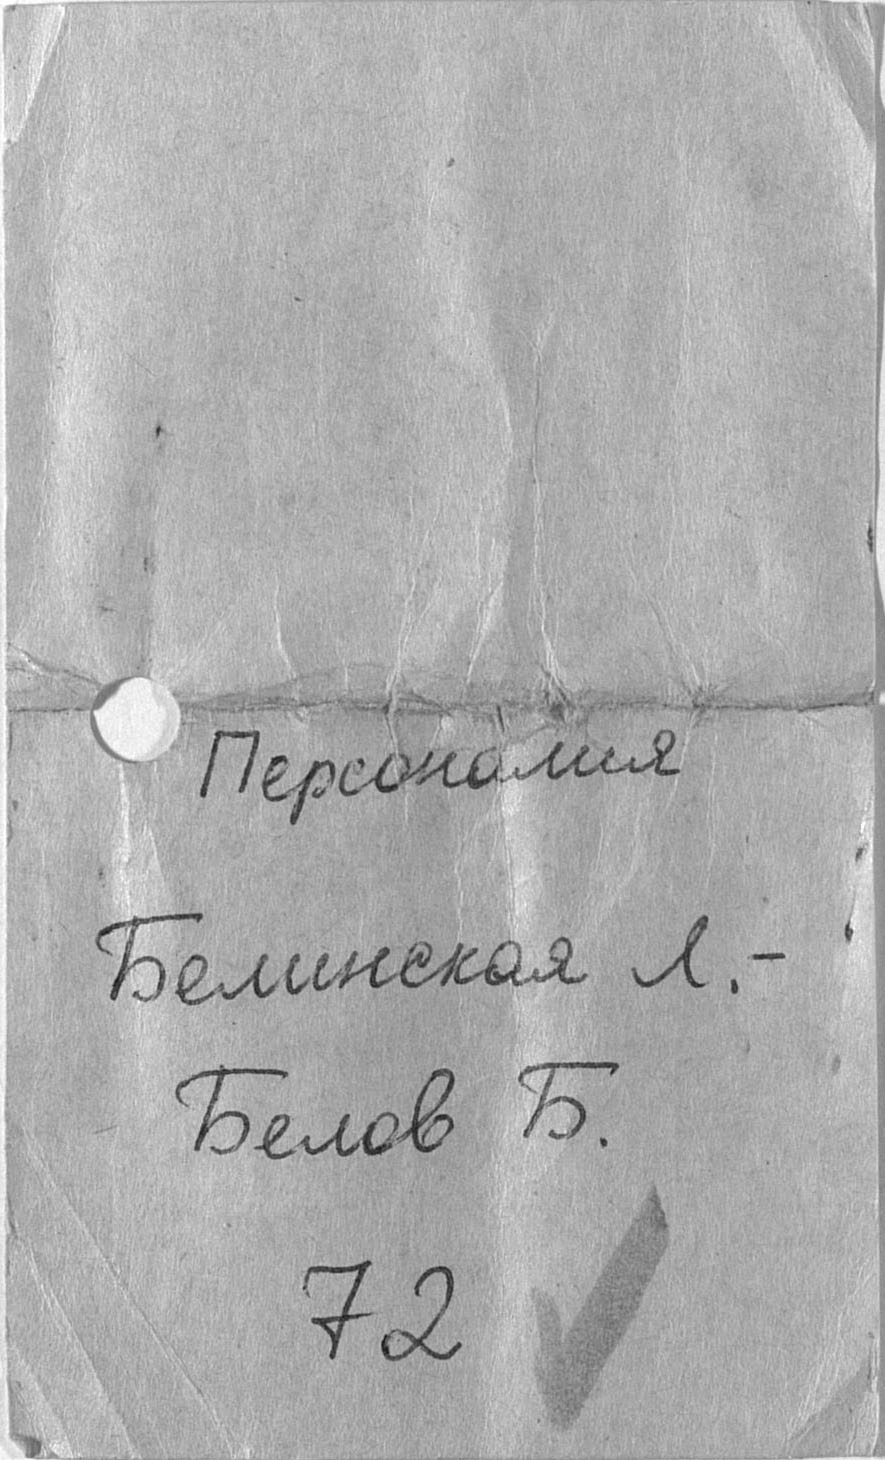 Персоналия
Белинская Л.-
Белов Б.
72